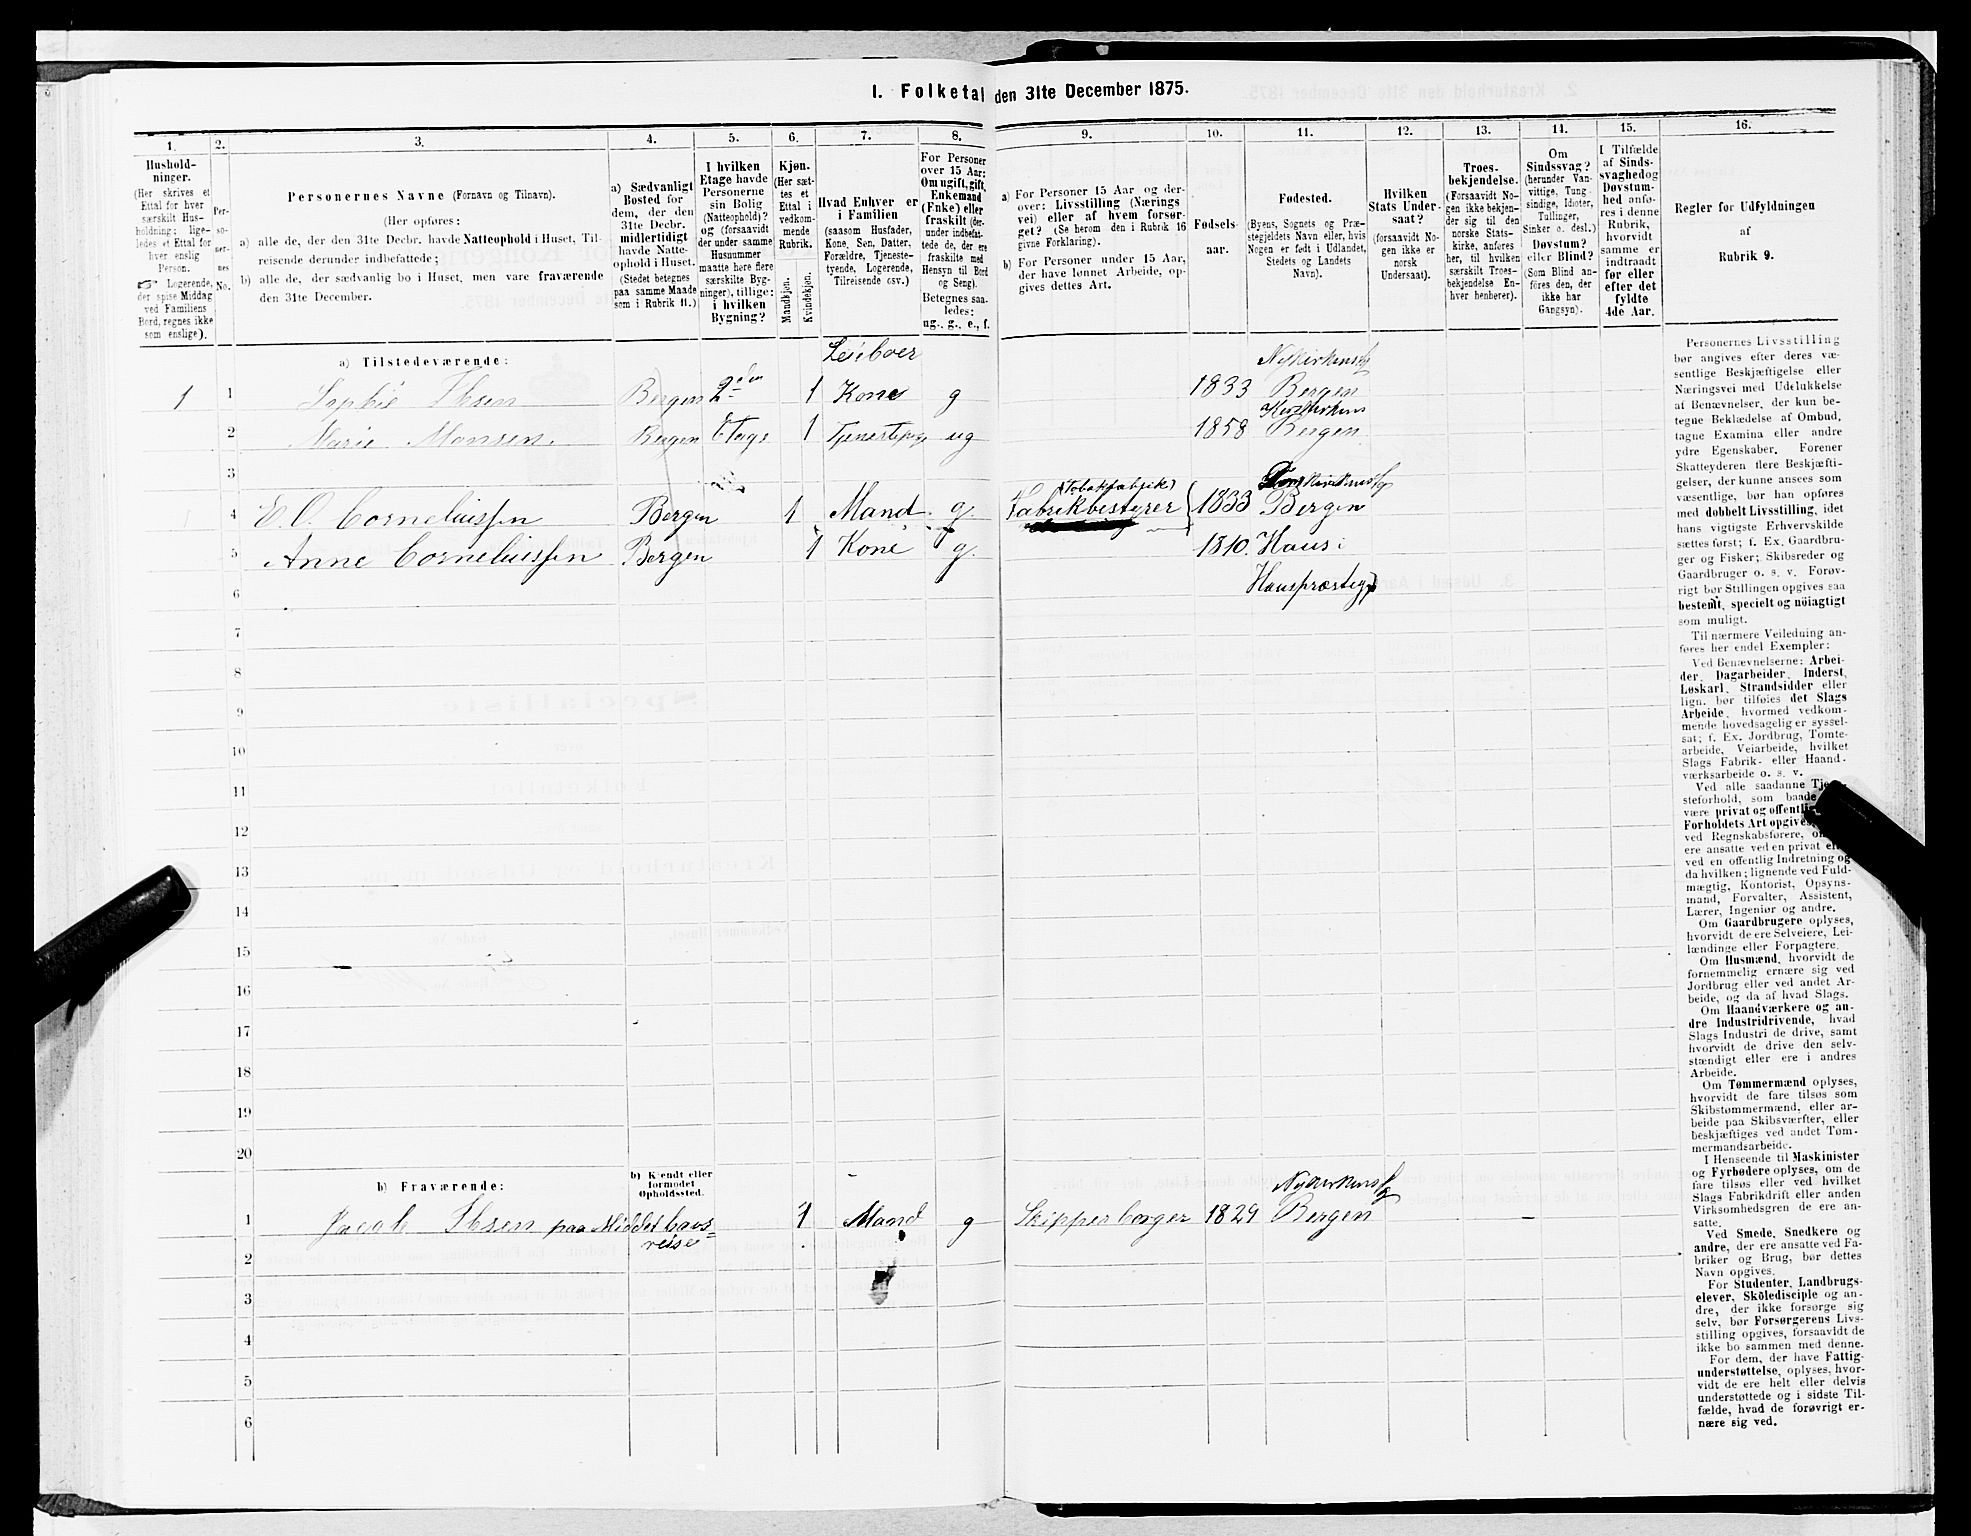 I. Folketal den 31te December 1875.
1.
2.
3.
4.
5.
6.
7.
8.
9.
10.
11.
12.
13.
14.
15.
16.
Hushold-
ninger.
(Her skrives et
Ettal for hver
særskilt Hus-
holdning; lige-
ledes et Ettal for
hver enslig
Person.
☞ Logerende,
der spise Middag
ved Familiens
Bord, regnes ikke
som enslige).
Per-
so-
ner-
nes
No.
Personernes Navne (Fornavn og Tilnavn).
(Her opføres:
a) alle de, der den 31te Decbr. havde Natteophold i Huset, Til-
reisende derunder indbefattede;
b) alle de, der sædvanlig bo i Huset, men vare fraværende
den 31te December.
a) Sædvanligt
Bosted for
dem, der den
31te Decbr.
midlertidigt
havde Natte-
ophold i Huset.
(Stedet betegnes
paa samme Maade
som i Rubrik 11.)
I hvilken
Etage havde
Personerne
sin Bolig
(Natteophold)?
og (forsaavidt
der under samme
Husnummer
maatte høre flere
særskilte Byg-
ninger), tillige:
i hvilken
Bygning?
Kjøn.
(Her sæt-
tes et
Ettal i
vedkom-
mende
Rubrik.
Mandkjøn.
Kvindekjøn.
Hvad Enhver er
i Familien
(saasom Husfader,
Kone, Søn, Datter,
Forældre, Tjeneste-
tyende, Logerende,
Tilreisende osv.)
For Personer
over 15 Aar:
Om ugift, gift,
Enkemand
(Enke) eller
fraskilt (der-
under indbefat-
tede de, der ere
fraskilte med
Hensyn til Bord
og Seng).
Betegnes saa-
ledes:
ug., g., e., f.
a) For Personer 15 Aar og der-
over: Livsstilling (Nærings
vei) eller af hvem forsør-
get? (Se herom den i Rubrik 16
givne Forklaring).
b) For Personer under 15 Aar,
der have lønnet Arbeide, op-
gives dettes Art.
Fødsels-
aar.
Fødested.
(Byens, Sognets og Præ-
stegjeldets Navn eller, hvis
Nogen er født i Udlandet,
Stedets og Landets
Navn).
Hvilken
Stats Under-
saat?
(forsaavidt No-
gen ikke er
norsk
Undersaat).
Troes-
bekjendelse.
(Forsaavidt No-
gen ikke bekjen-
der sig til den
norske Stats-
kirke, anføres
her, til hvilken
særskilt Troes-
bekjendelse En-
hver henhører).
Om
Sindssvag?
(herunder Van-
vittige, Tung-
sindige, Idioter,
Tullinger,
Sinker o. desl.)
Døvstum?
eller Blind?
(Som Blind an-
føres den, der
ikke har
Gangsyn).
I Tilfælde
af Sinds-
svaghed og
Døvstum-
hed anfø-
res i denne
Rubrik,
hvorvidt
samme er
indtraadt
før eller
efter det
fyldte
4de Aar.
Regler for Udfyldningen
af
Rubrik 9.
a) Tilstedeværende:
Leieboer
Nykirkens
1 1 Sophie Ibsen Bergen 2den 1 Kone g 1833 Bergen
Korskirkens
2 Marie Monsen. Bergen Etage 1 ug 1858 Bergen
3
(Tobakfabrik) Domkirkens
4 E. O. Corneliussen Bergen 1 Mand. g. Fabrikbestyrer 1833 Bergen
5 Anne Corneliussen Bergen 1 Kone g. 1810. Haus i
Hauspræstegj
6
7
8
9
10
11
12
13
14
15
16
17
18
19
20
b) Fraværende:
b) Kjendt eller
formodet
Opholdssted.
Nykirkens
1 Jacob Ibsen paa Middelhavs= 1 Mand g Skipperborger 1829 Bergen
reise
2
3
4
5
6
Personernes Livsstilling
bør angives efter deres væ-
sentlige Beskjæftigelse eller
Næringsvei med Udelukkelse
af Benævnelser, der kun be-
tegne Beklædelse af Ombud,
tagne Examina eller andre
ydre Egenskaber. Forener
Skatteyderen flere Beskjæfti-
gelser, der kunne ansees som
væsentlige, bør han opføres
med dobbelt Livsstilling, idet
hans vigtigste Erhvervskilde
sættes først; f. Ex. Gaardbru-
ger og Fisker; Skibsreder og
Gaardbruger o. s. v. Forøv-
rigt bør Stillingen opgives saa
bestemt, specielt og nöiagtigt
som muligt.
Til nærmere Veiledning an-
føres her endel Exempler:
Ved Benævnelserne: Arbei-
der, Dagarbeider, Inderst,
Løskarl, Strandsidder eller
lign. bør tilføies det Slags
Arbeide, hvormed vedkom-
mende hovedsagelig er syssel-
sat; f. Ex. Jordbrug, Tomte-
arbeide, Veiarbeide, hvilket
Slags Fabrik- eller Haand-
værksarbeide o. s. v.
Ved alle saadanne
steforhold, som
være privat og
Forholdets Art opgives,
ved Regnskabsførere,
ere ansatte ved en privat
ved en offentlig Indretning og
da hvilken; lignende ved Fuld-
mægtig, Kontorist, Opsyns-
mand, Forvalter, Assistent,
Lærer, Ingeniør og andre.
Om Gaardbrugere oplyses,
hvorvidt de ere Selveiere, Lei-
lændinge eller Forpagtere.
Om Husmænd, hvorvidt de
fornemmelig ernære sig ved
Jordbrug eller ved andet Ar-
beide, og da af hvad Slags.
Om Haandværkere og an-
dre Industridrivende, hvad
Slags Industri de drive, samt
hvorvidt de drive den selv-
stændigt eller ere i andres
Arbeide.
Om Tømmermænd oplyses,
hvorvidt de fare tilsøs som
Skibstømmermænd, eller ar-
beide paa Skibsværfter, eller
beskjæftiges ved andet Tøm-
mermandsarbeide.
I Henseende til Maskinister
og Fyrbødere oplyses, om de
fare tilsøs eller ved hvilket
Slags Fabrikdrift eller anden
Virksomhedsgren de ere an-
satte.
Ved Smede, Snedkere og
andre, der ere ansatte ved Fa-
briker og Brug, bør dettes
Navn opgives.
For Studenter, Landbrugs-
elever, Skoledisciple og an-
dre, der ikke forsørge sig
selv, bør Forsørgerens Livs-
stilling opgives, forsaavidt de
ikke bo sammen med denne.
For dem, der have Fattig-
understøttelse, oplyses, hvor-
vidt de ere helt eller delvis
understøttede og i sidste Til-
fælde, hvad de forøvrigt er-
nære sig ved.